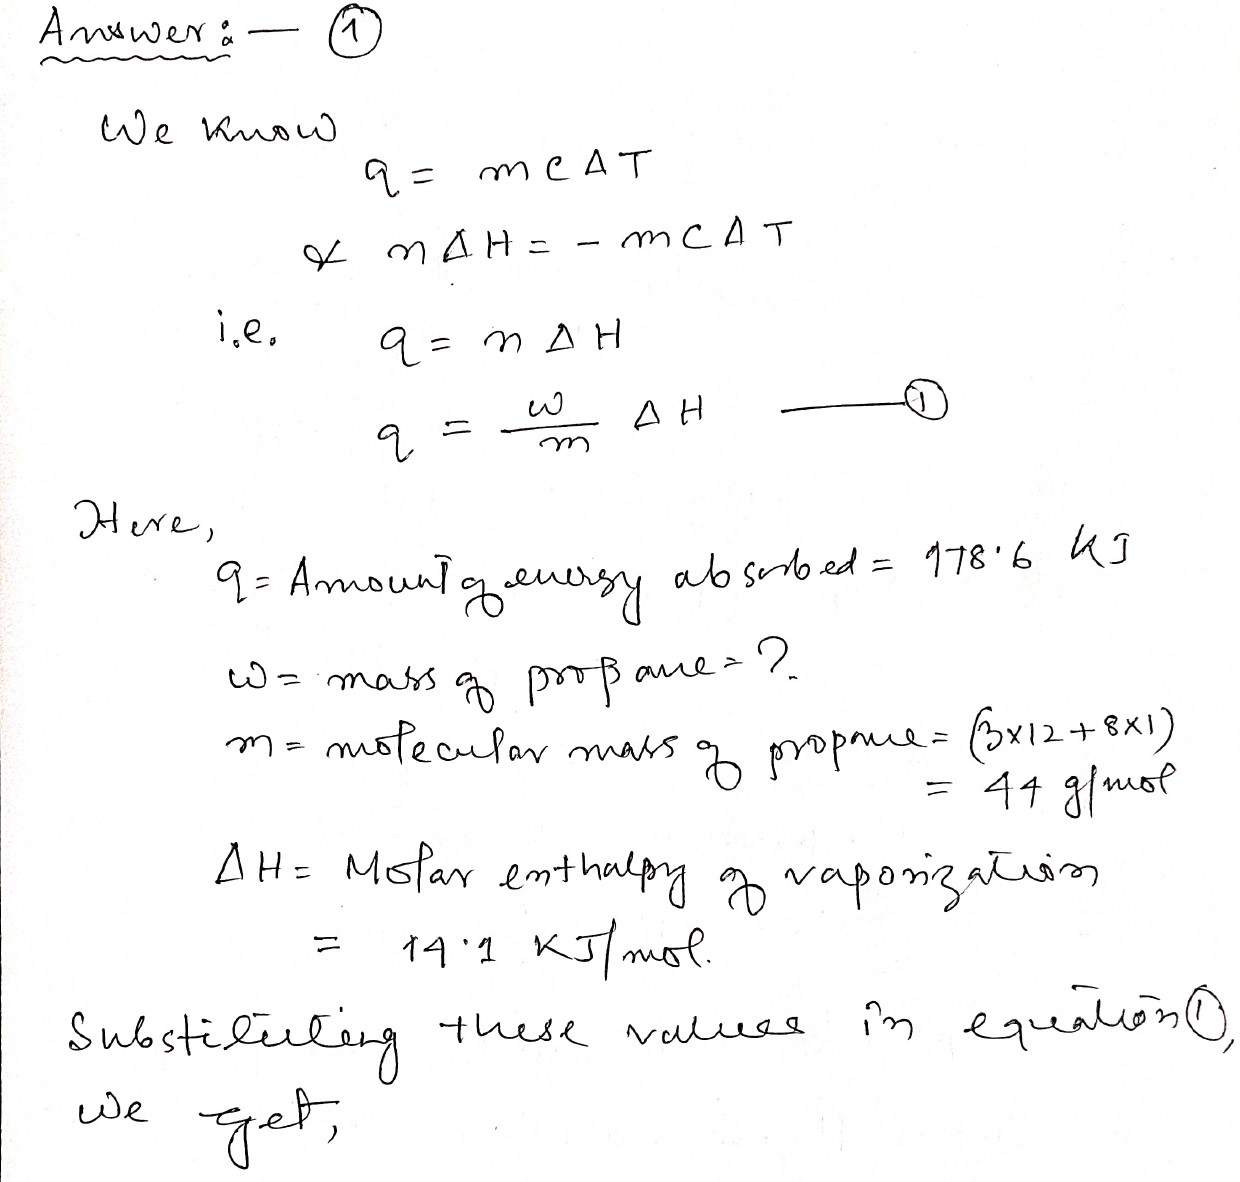 Answer :— ①
We know
q = mCΔT
& nΔH = - mCΔT
i.e. q = nΔH
q = w/m ΔH —— ①
Here,
q = Amount of energy absorbed = 978.6 kJ
w = mass of propane = ?
m = molecular mass of propane = (3x12 + 8x1)
= 44 g/mol
ΔH = Molar enthalpy of vaporization
= 14.1 KJ/mol.
Substituting these values in equation ①,
we get,